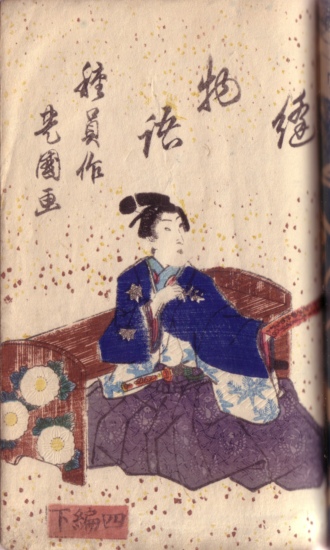 縫
物
語
種員作
芳國画
四編下